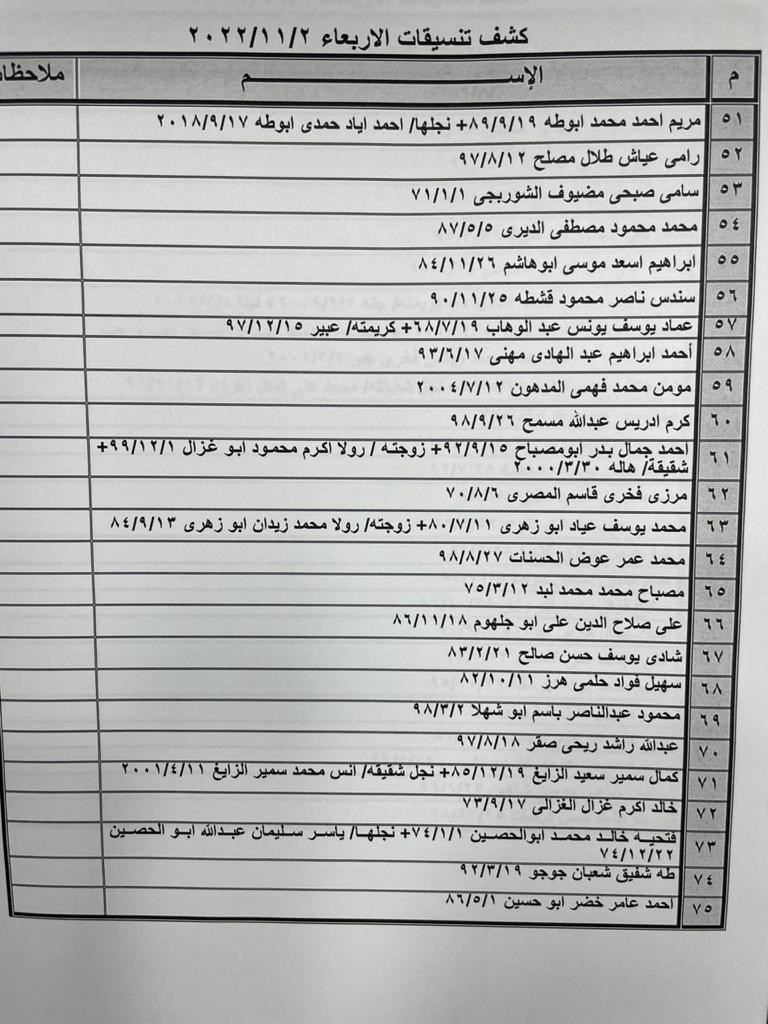 كشف تنسيقات الاربعاء ٢٠٢٢/١١/٢
م الإســـــــــم ملاحظات
٥١ مريم احمد محمد ابوطه ٨٩/٩/١٩+ نجلها/ احمد اياد حمدى ابوطه ٢٠١٨/٩/١٧
٥٢ رامى عياش طلال مصلح ٩٧/٨/١٢
٥٣ سامى صبحى مضيوف الشوربجى ٧١/١/١
٥٤ محمد محمود مصطفى الديرى ٨٧/٥/٥
٥٥ ابراهيم اسعد موسى ابوهاشم ٨٤/١١/٢٦
٥٦ سندس ناصر محمود قشطه ٩٠/١١/٢٥
٥٧ عماد يوسف يونس عبد الوهاب ٦٨/٧/١٩+ كريمته/ عبير ٩٧/١٢/١٥
٥٨ أحمد ابراهيم عبد الهادى مهنى ٩٣/٦/١٧
٥٩ مومن محمد فهمى المدهون ٢٠٠٤/٧/١٢
٦٠ كرم ادريس عبدالله مسمح ٩٨/٩/٢٦
٦١ احمد جمال بدر ابومصباح ٩٢/٩/١٥+ زوجته / رولا اكرم محمود ابو غزال ٩٩/١٢/١+
شقيقة/ هاله ٢٠٠٠/٣/٣٠
٦٢ مرزى فخرى قاسم المصرى ٧٠/٨/٦
٦٣ محمد يوسف عياد ابو زهرى ٨٠/٧/١١+ زوجته/ رولا محمد زيدان ابو زهرى ٨٤/٩/١٣
٦٤ محمد عمر عوض الحسنات ٩٨/٨/٢٧
٦٥ مصباح محمد محمد لبد ٧٥/٣/١٢
٦٦ على صلاح الدين على ابو جلهوم ٨٦/١١/١٨
٦٧ شادى يوسف حسن صالح ٨٣/٢/٢١
٦٨ سهيل فواد حلمى هرز ٨٢/١٠/١١
٦٩ محمود عبدالناصر باسم ابو شهلا ٩٨/٣/٢
٧٠ عبدالله راشد ريحى صقر ٩٧/٨/١٨
٧١ كمال سمير سعيد الزايغ ٨٥/١٢/١٩+ نجل شقيقه/ انس محمد سمير الزايغ ٢٠٠١/٤/١١
٧٢ خالد اكرم غزال الغزالى ٧٣/٩/١٧
٧٣ فتحيه خالد محمد ابوالحصين ٧٤/١/١+ نجلها/ ياسر سليمان عبدالله ابو الحصين
٧٤/١٢/٢٢
٧٤ طه شفيق شعبان جوجو ٩٢/٣/١٩
٧٥ احمد عامر خضر ابو حسين ٨٦/٥/١